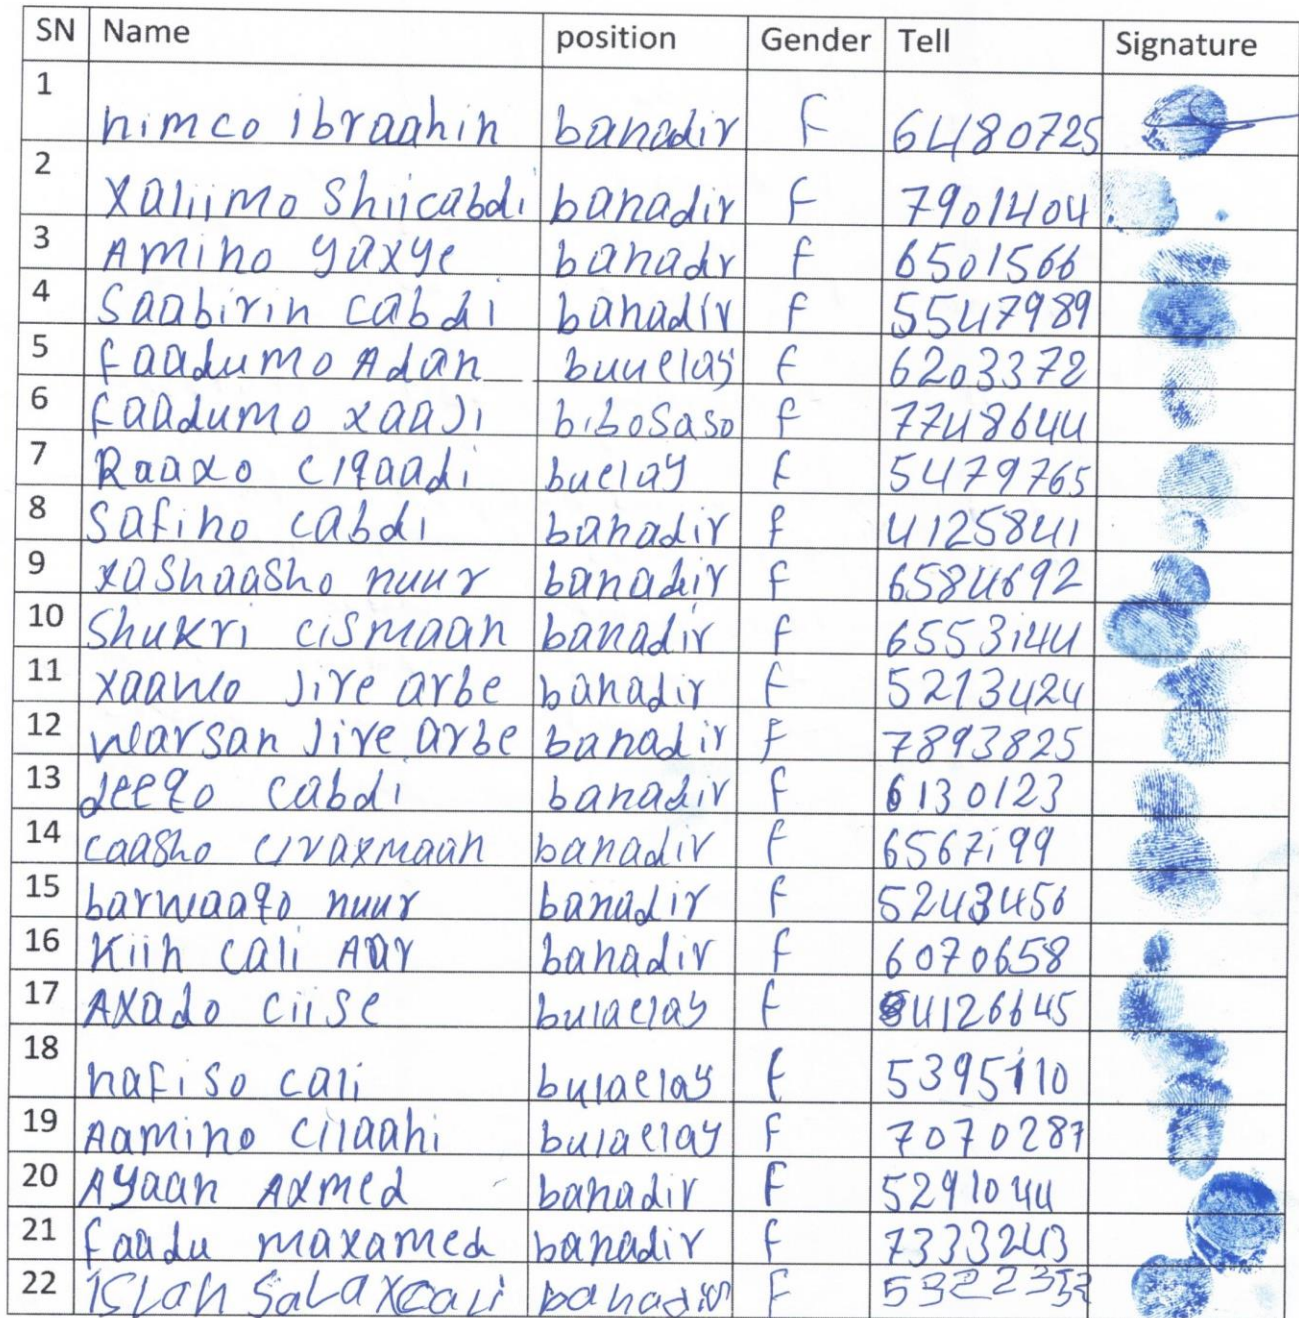 SN Name position Gender Tell Signature
1 nimco ibraahin banadir F 6480725
2 xaliimo Shiicabdi banadir F 7901404
3 Amino yaxye banadr F 6501566
4 Saabirin cabdi banadir F 5547989
5 faadumo Adan buuelay F 6203372
6 faadumo xaaji biboSaso F 7748644
7 Raaxo ciqaadi buelay F 5479765
8 Safino cabdi banadir F 4125841
9 xaShaaSho nuur banadir F 6584692
10 Shukri ciSmaan banadir F 6553144
11 xaawo Jire arbe banadir F 5213424
12 warsan Jire arbe banadir F 7893825
13 deeqo cabdi banadir F 6130123
14 caaSho ciraxmaan banadir F 6567199
15 barwaaqo nuur banadir F 5243456
16 Kiin cali Aar banadir F 6070658
17 Axado ciiSe bulaelay F 4126645
18 nafiso cali bulaelay F 5395110
19 Aamino cilaahi bulaelay F 7070287
20 Ayaan Axmed banadir F 5291044
21 faadu maxamed banadir F 7333243
22 iSLan SaLaxcali banadir F